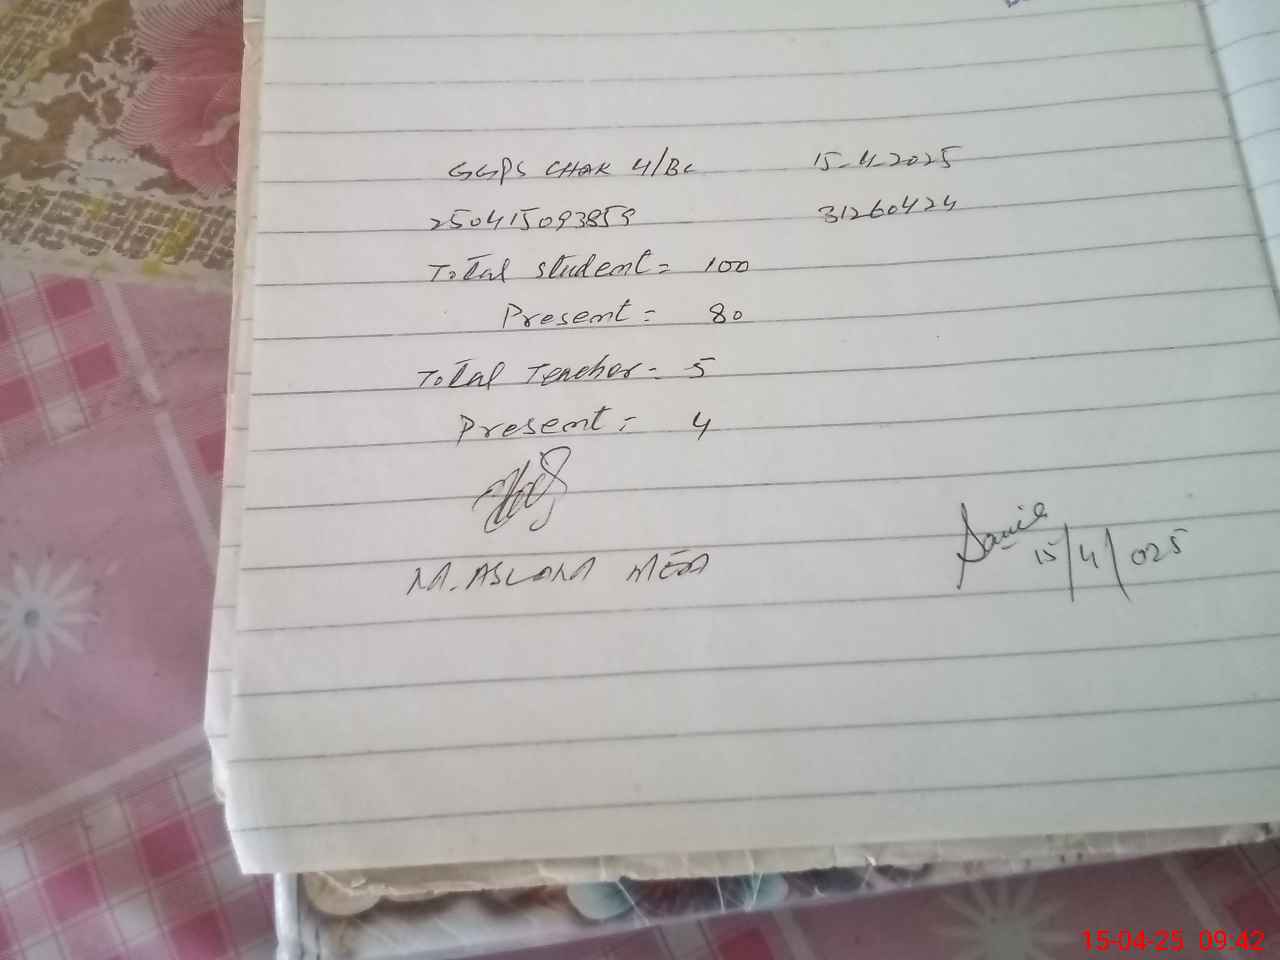 GGPS CHAK 4/BC 15-4-2025
250415093859 31260424
Total student = 100
Present = 80
Total Teacher = 5
Present = 4
M. ASLAM MEA
15/4/025
15-04-25 09:42